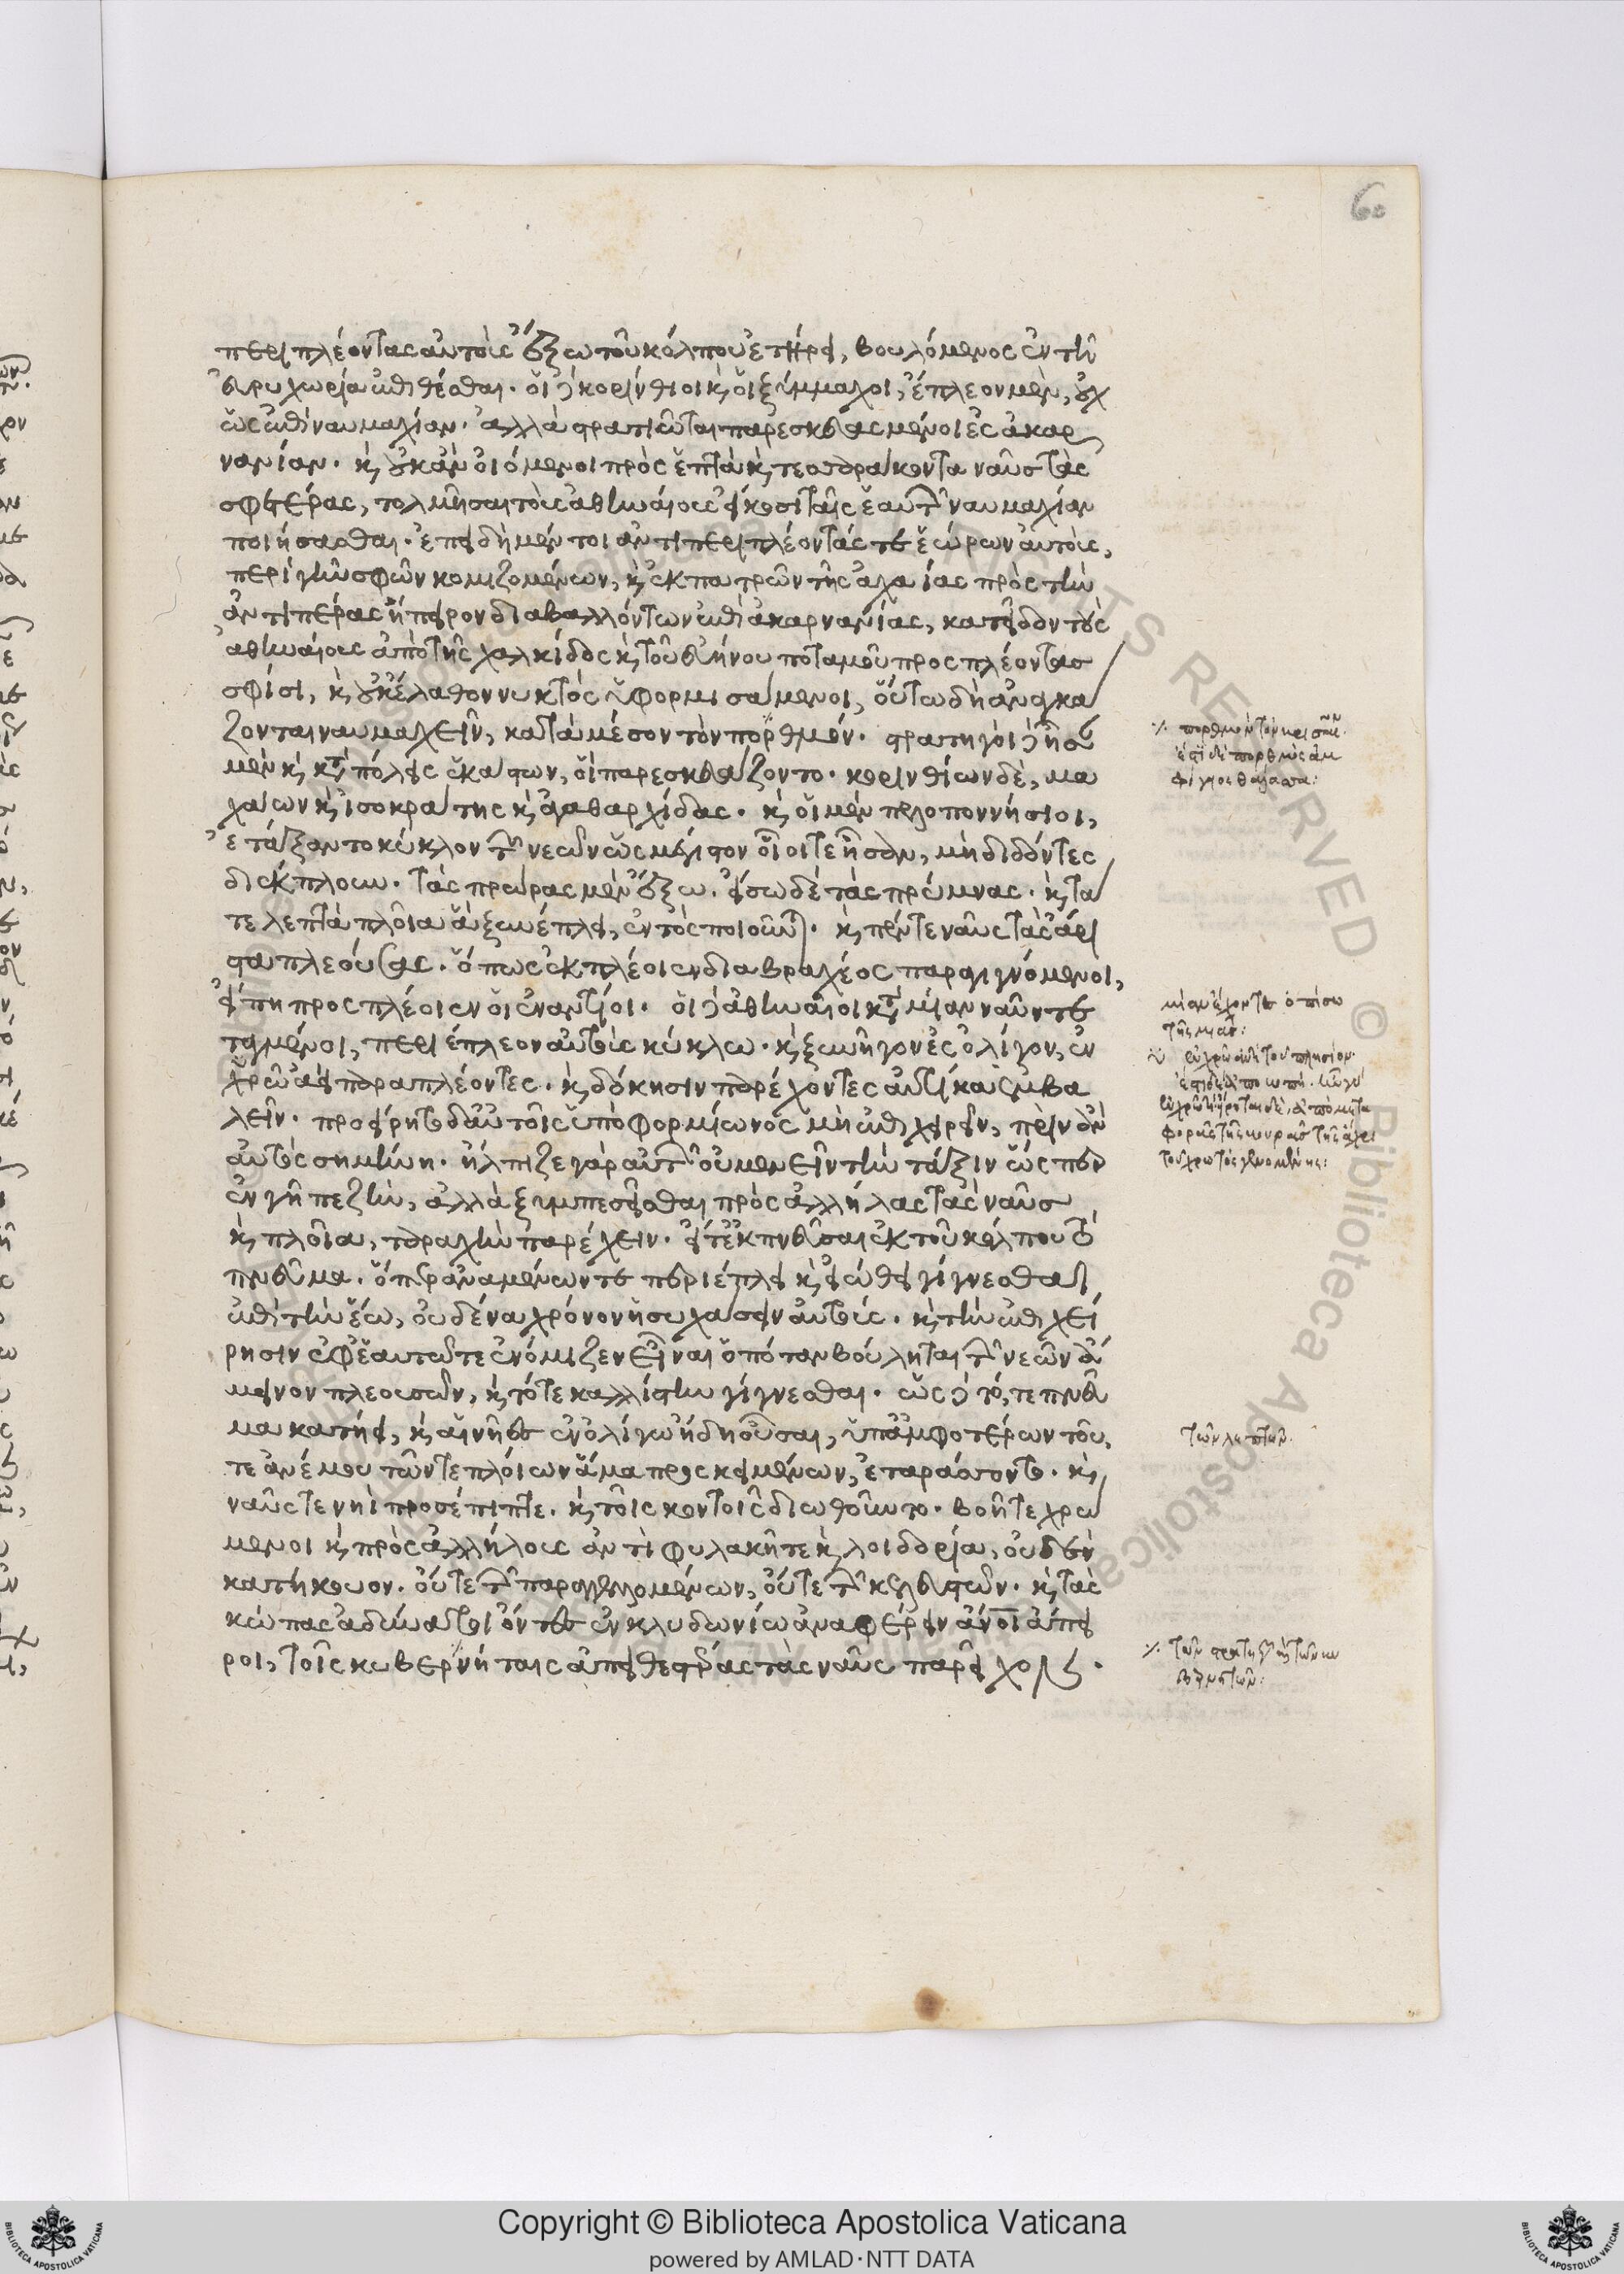 60
περιπλέοντας αὐτοὺς ἔξω τοῦ κόλπου ἐτήρει, βουλόμενος ἐν τῆ
εὐρυχωρία ἐπιθέσθαι. οἱ δὲ κορίνθιοι καὶ οἱ ξύμμαχοι, ἔπλεον μὲν, οὐχ
ὡς ἐπὶ ναυμαχίαν. ἀλλὰ στρατιῶται παρεσκευασμένοι ἐς ἀκαρ
νανίαν. καὶ οὐκ ἂν οἰόμενοι πρὸς ἑπτὰ καὶ τεσσαράκοντα ναῦς τὰς
σφετέρας, τολμῆσαι τοὺς ἀθηναίους εἴκοσι ταῖς ἑαυτῶν ναυμαχίαν
ποιήσασθαι. ἐπειδὴ μέντοι ἀντιπεριπλέοντάς τε ἑώρων αὐτοὺς,
περὶ γῆν σφῶν κομιζομένων, καὶ ἐκ πατρῶν τῆς ἀχαΐας πρὸς τὴν
ἀντιπέρας ἤπειρον διαβαλλόντων ἐπὶ ἀκαρνανίας, κατεῖδον τοὺς
ἀθηναίους ἀπὸ τῆς χαλκίδος καὶ τοῦ εὐήνου ποταμοῦ προσπλέοντας
σφίσι, καὶ οὐκ ἔλαθον νυκτὸς ὑφορμισάμενοι, οὕτω δὴ ἀναγκά
ζονται ναυμαχεῖν, κατὰ μέσον τὸν πορθμόν. στρατηγοὶ δὲ ἦσαν
μὲν καὶ κατὰ πόλεις ἑκάστων, οἳ παρεσκευάζοντο. κορινθίων δὲ, μα
χάων καὶ ἰσοκράτης καὶ ἀγαθαρχίδας. καὶ οἱ μὲν πελοποννήσιοι,
ἐτάξαντο κύκλον τῶν νεῶν ὡς μέγιστον οἷοί τε ἦσαν, μὴ διδόντες
διέκπλουν. τὰς πρώρας μὲν ἔξω. εἴσω δὲ τὰς πρύμνας. καὶ τά
τε λεπτὰ πλοῖα ἃ ξυνέπλει, ἐντὸς ποιοῦνται. καὶ πέντε ναῦς τὰς ἄρι
στα πλεούσας. ὅπως ἐκπλέοιεν διὰ βραχέος παραγιγνόμενοι,
εἴ πη προσπλέοιεν οἱ ἐναντίοι. οἱ δὲ ἀθηναῖοι κατὰ μίαν ναῦν τε
ταγμένοι, περιέπλεον αὐτοὺς κύκλω. καὶ ξυνῆγον ἐς ὀλίγον, ἐν
χρῶ ἀεὶ παραπλέοντες. καὶ δόκησιν παρέχοντες αὐτίκα ἐμβα
λεῖν. προείρητο δ' αὐτοῖς ὑπὸ φορμίωνος μὴ ἐπιχειρεῖν, πρὶν ἂν
αὐτὸς σημήνη. ἤλπιζε γὰρ αὐτῶν οὐ μενεῖν τὴν τάξιν ὥσπερ
ἐν γῆ πεζὴν, ἀλλὰ ξυμπεσεῖσθαι πρὸς ἀλλήλας τὰς ναῦς
καὶ πλοῖα, ταραχὴν παρέχειν. εἴ τ' ἐκπνεῦσαι ἐκ τοῦ κόλπου τὸ
πνεῦμα. ὅπερ ἀναμένων τε περιέπλει καὶ εἰώθει γίγνεσθαι
ἐπὶ τὴν ἕω, οὐδένα χρόνον ἡσυχάσειν αὐτούς. καὶ τὴν ἐπιχεί
ρησιν ἐφ' ἑαυτῶ τε ἐνόμιζεν εἶναι ὁπόταν βούληται τῶν νεῶν ἄ
μεινον πλεουσῶν, καὶ τότε καλλίστην γίγνεσθαι. ὡς δὲ τό, τε πνεῦ
μα κατήει, καὶ αἱ νῆες ἐν ὀλίγω ἤδη οὖσαι, ὑπ' ἀμφοτέρων τοῦ,
τε ἀνέμου τῶν τε πλοίων ἅμα προσκειμένων, ἐταράσσοντο. καὶ
ναῦς τε νηὶ προσέπιπτε. καὶ τοῖς κοντοῖς διωθοῦντο. βοῆ τε χρώ
μενοι καὶ πρὸς ἀλλήλους ἀντιφυλακῆ τε καὶ λοιδορία, οὐδὲν
κατήκουον. οὔτε τῶν παραγγελλομένων, οὔτε τῶν κελευστῶν. καὶ τὰς
κώπας ἀδύνατοι ὄντες ἐν κλυδωνίω ἀναφέρειν ἄνοι ἄπει
ροι, τοῖς κυβερνήταις ἀπειθεστέρας τὰς ναῦς παρεῖχον.
πορθμὸν τὸν
ἐστὶ δὲ πορθμὸς ἀμ
φίγειος θάλασσα:
μίαν ἔχοντες ὀπίσω
τῆς μιᾶς:
ἐν χρῶ ἀντὶ τοῦ πλησίον.
φορᾶς τῆς κουρᾶς τῆς ἄχρι
τοῦ χρωτὸς γενομένης:
τῶν λεπτῶν.
τῶν στρατηγῶν καὶ τῶν κυ
βερνητῶν:
Copyright © Biblioteca Apostolica Vaticana
powered by AMLAD·NTT DATA